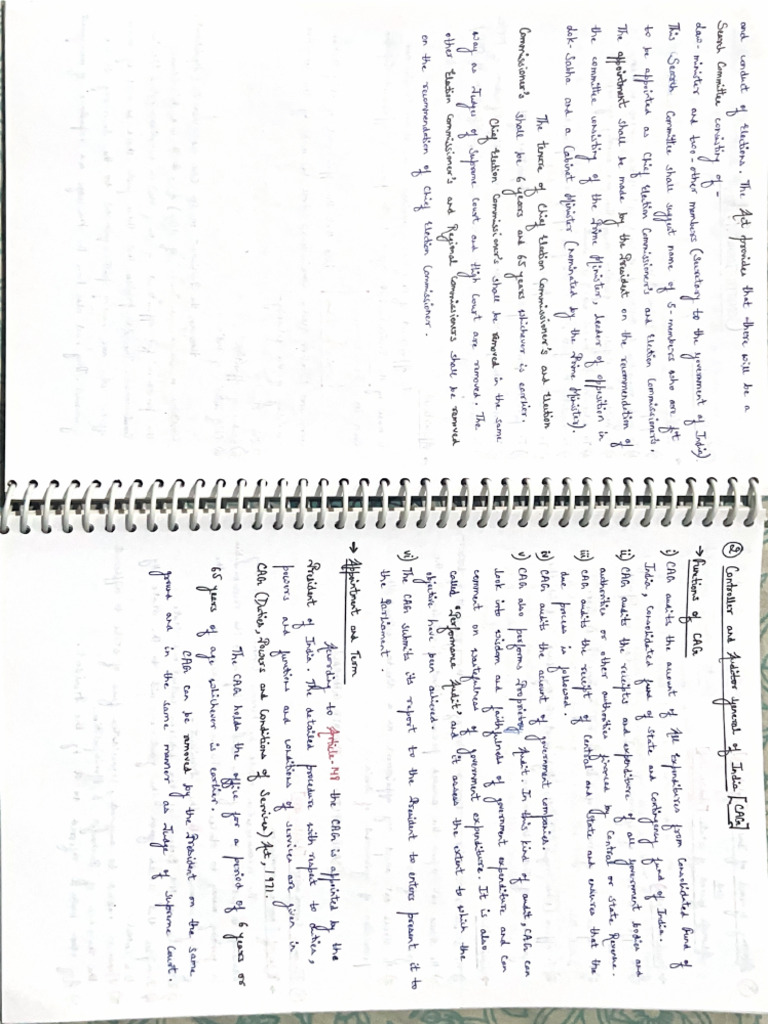 and conduct of Elections. The Act provides that there will be a
Search Committee consisting of -
Law-minister and two-other members (Secretary to the government of India)
This Search Committee shall suggest name of 5-members who are fit
to be appointed as Chief Election Commissioner's and Election Commissioner's.
The appointment shall be made by the President on the recommendation of
the committee consisting of the Prime Minister, leader of opposition in
Lok-Sabha and a Cabinet Minister (nominated by the Prime Minister).
The tenure of Chief Election Commissioner's and Election
Commissioner's shall be 6 years and 65 years whichever is earlier.
Chief Election Commissioner's shall be removed in the same
way as Judges of Supreme Court and High Court are removed. The
other Election Commissioner's and Regional Commissioners shall be removed
on the recommendation of Chief Election Commissioner.
② Controller and Auditor General of India [CAG]
→ Functions of CAG
i) CAG audits the account of All Expenditures from Consolidated Fund of
India, Consolidated fund of State and Contingency fund of India.
ii) CAG audits the receipts and expenditure of all government bodies and
authorities or other authorities financed by Central or State Revenue.
iii) CAG audits the receipt of Central and State and ensures that the
due process is followed.
iv) CAG audits the account of government companies.
v) CAG also performs Propriety Audit. In this kind of audit, CAG can
look into wisdom and faithfulness of government expenditure and can
comment on wastefulness of government expenditure. It is also
called "Performance Audit" and it assess the extent to which the
objective have been achieved.
vi) The CAG submits its report to the President to enters present it to
the Parliament.
→ Appointment and Term
According to Article-148 the CAG is appointed by the
President of India. The detailed procedure with respect to duties,
powers and functions and conditions of services are given in
CAG (Duties, Powers and Conditions of Services) Act, 1971.
The CAG holds the office for a period of 6 years or
65 years of age whichever is earlier.
CAG can be removed by the President on the same
ground and in the same manner as Judge of Supreme Court.